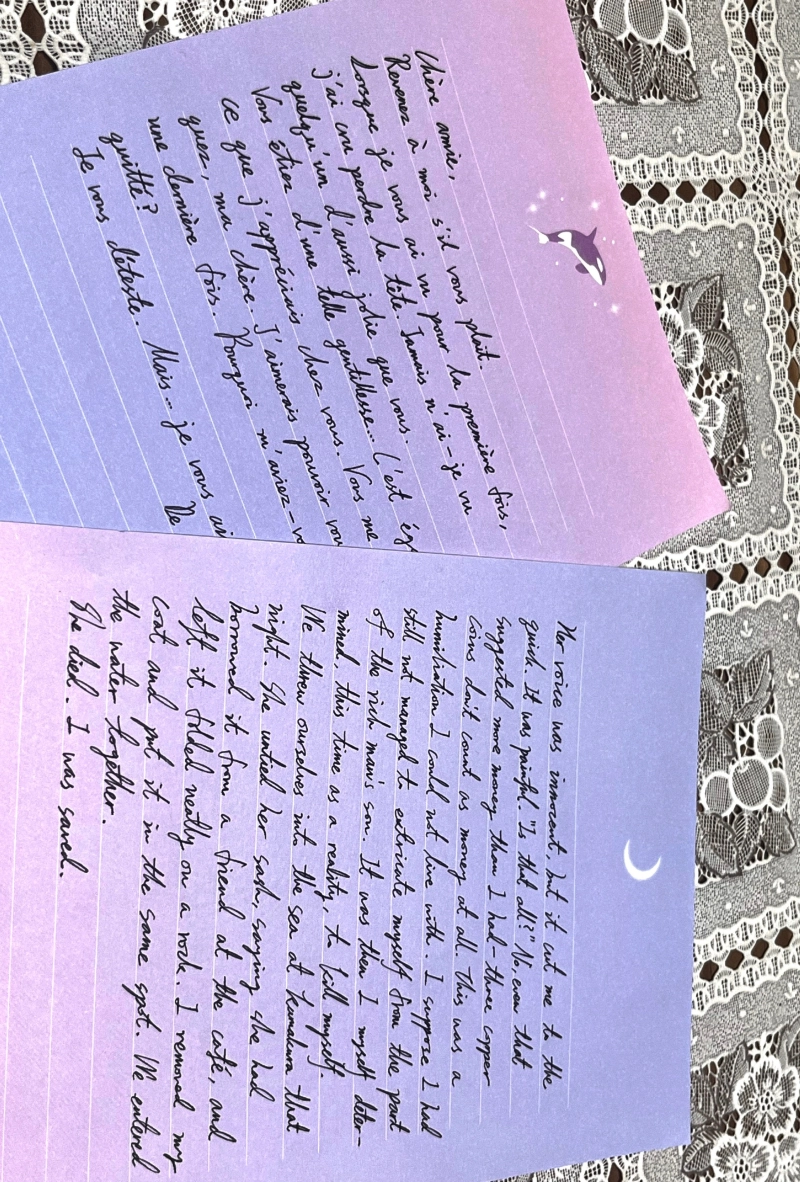 Chère amie,
Revenez à moi s'il vous plaît.
Lorsque je vous ai vu pour la première fois,
j'ai cru perdre la tête. Jamais n'ai-je vu
quelqu'un d'aussi jolie que vous.
Vous étiez d'une telle gentillesse... C'est ég
ce que j'appréciais chez vous. Vous me
quez, ma chère. J'aimerais pouvoir vou
une dernière fois. Pourquoi m'aviez-vo
quitté?
Je vous déteste. Mais... je vous ai
De
Her voice was innocent, but it cut me to the
quick. It was painful. "Is that all?" No, even that
suggested more money than I had - three copper
coins don't count as money at all. This was a
humiliation I could not live with. I suppose I had
still not managed to extricate myself from the part
of the rich man's son. It was then I myself deter-
mined, this time as a reality, to kill myself.
We threw ourselves into the sea at Kamakura that
night. She untied her sash, saying she had
borrowed it from a friend at the café, and
left it folded neatly on a rock. I removed my
coat and put it in the same spot. We entered
the water together.
She died. I was saved.